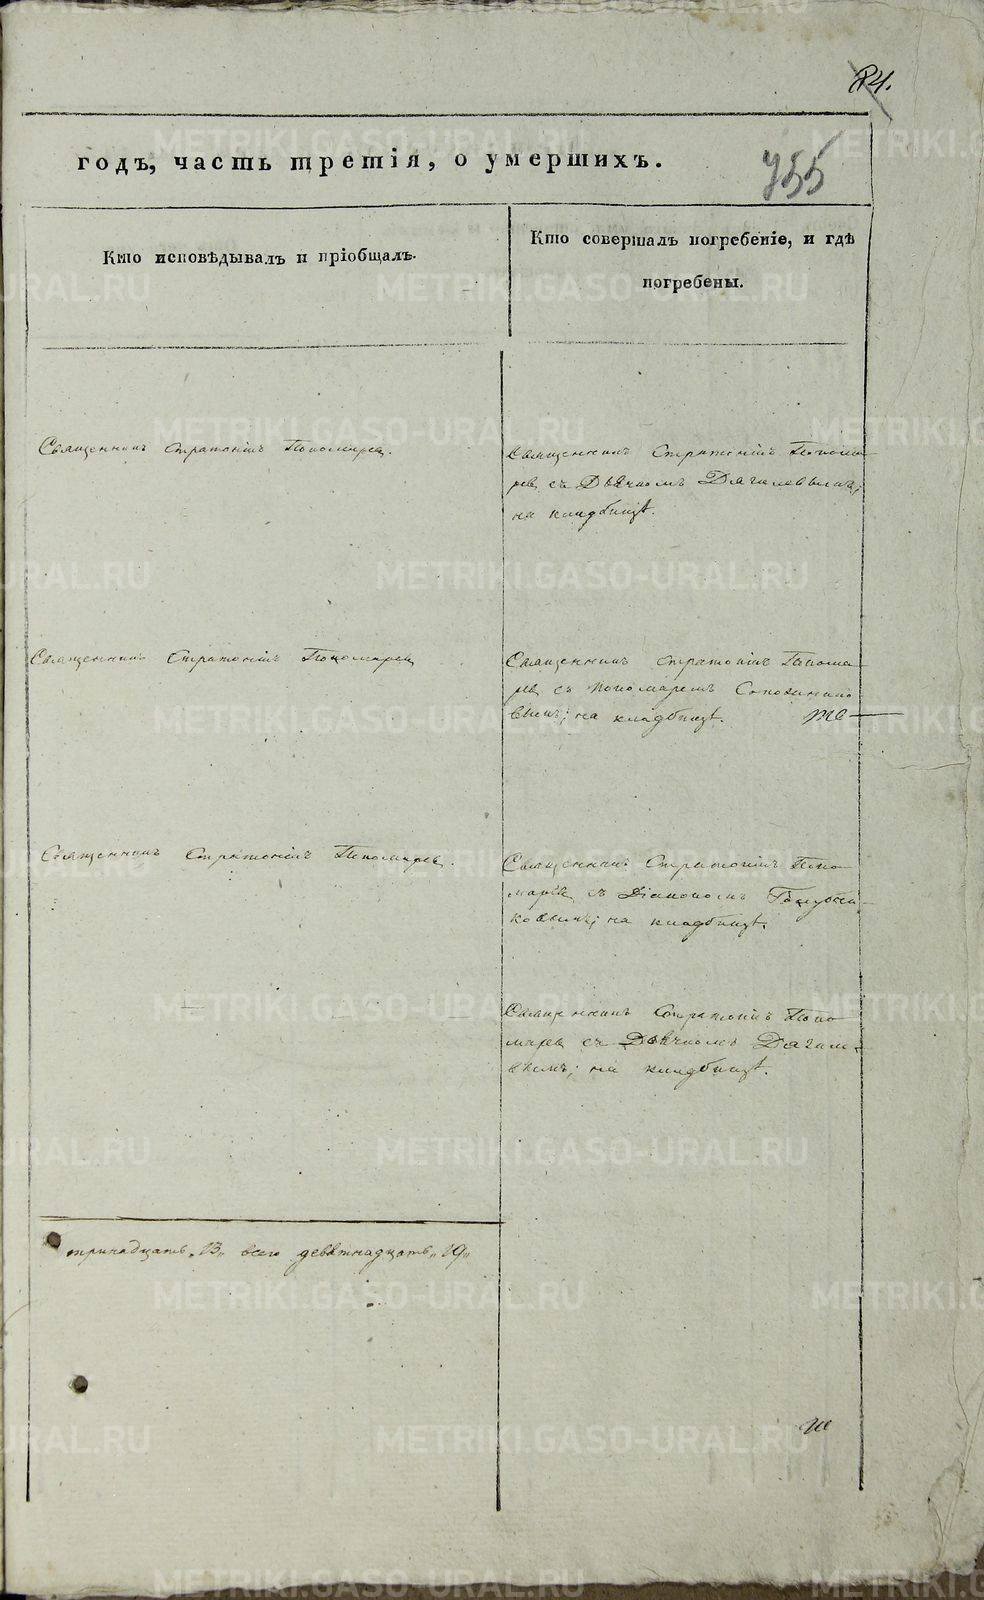 84.
годъ, часть третія, о умершихъ.
755
Кто исповѣдывалъ и пріобщалъ.
Кто совершалъ погребеніе, и гдѣ
погребены.
Священникъ Стратоникъ Пономарев.
Священникъ Стратоникъ Понома-
рев съ Дьячкомъ Дягилевымъ;
на кладбищѣ.
Священникъ Стратоникъ Пономарев
Священникъ Стратоникъ Понома-
рев съ пономаремъ
на кладбищѣ.
Священникъ Стратоникъ Пономарев.
Священникъ Стратоникъ Поно-
марев съ Діакономъ
на кладбищѣ.
Священникъ Стратоникъ Поно-
марев съ Дьячкомъ Дягиле-
вымъ; на кладбищѣ.
тринадцать „13„ всего девятнадцать „19„
METRIKI.GASO-URAL.RU